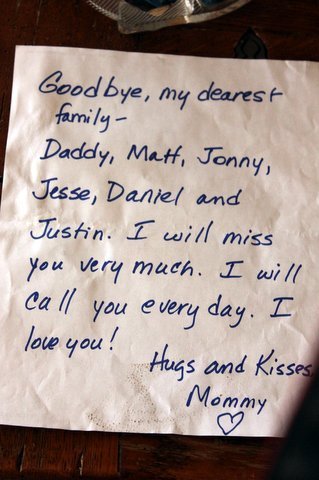 Goodbye, my dearest
family-
Daddy, Matt, Jonny,
Jesse, Daniel and
Justin. I will miss
you very much. I will
call you every day. I
love you!
Hugs and Kisses
Mommy